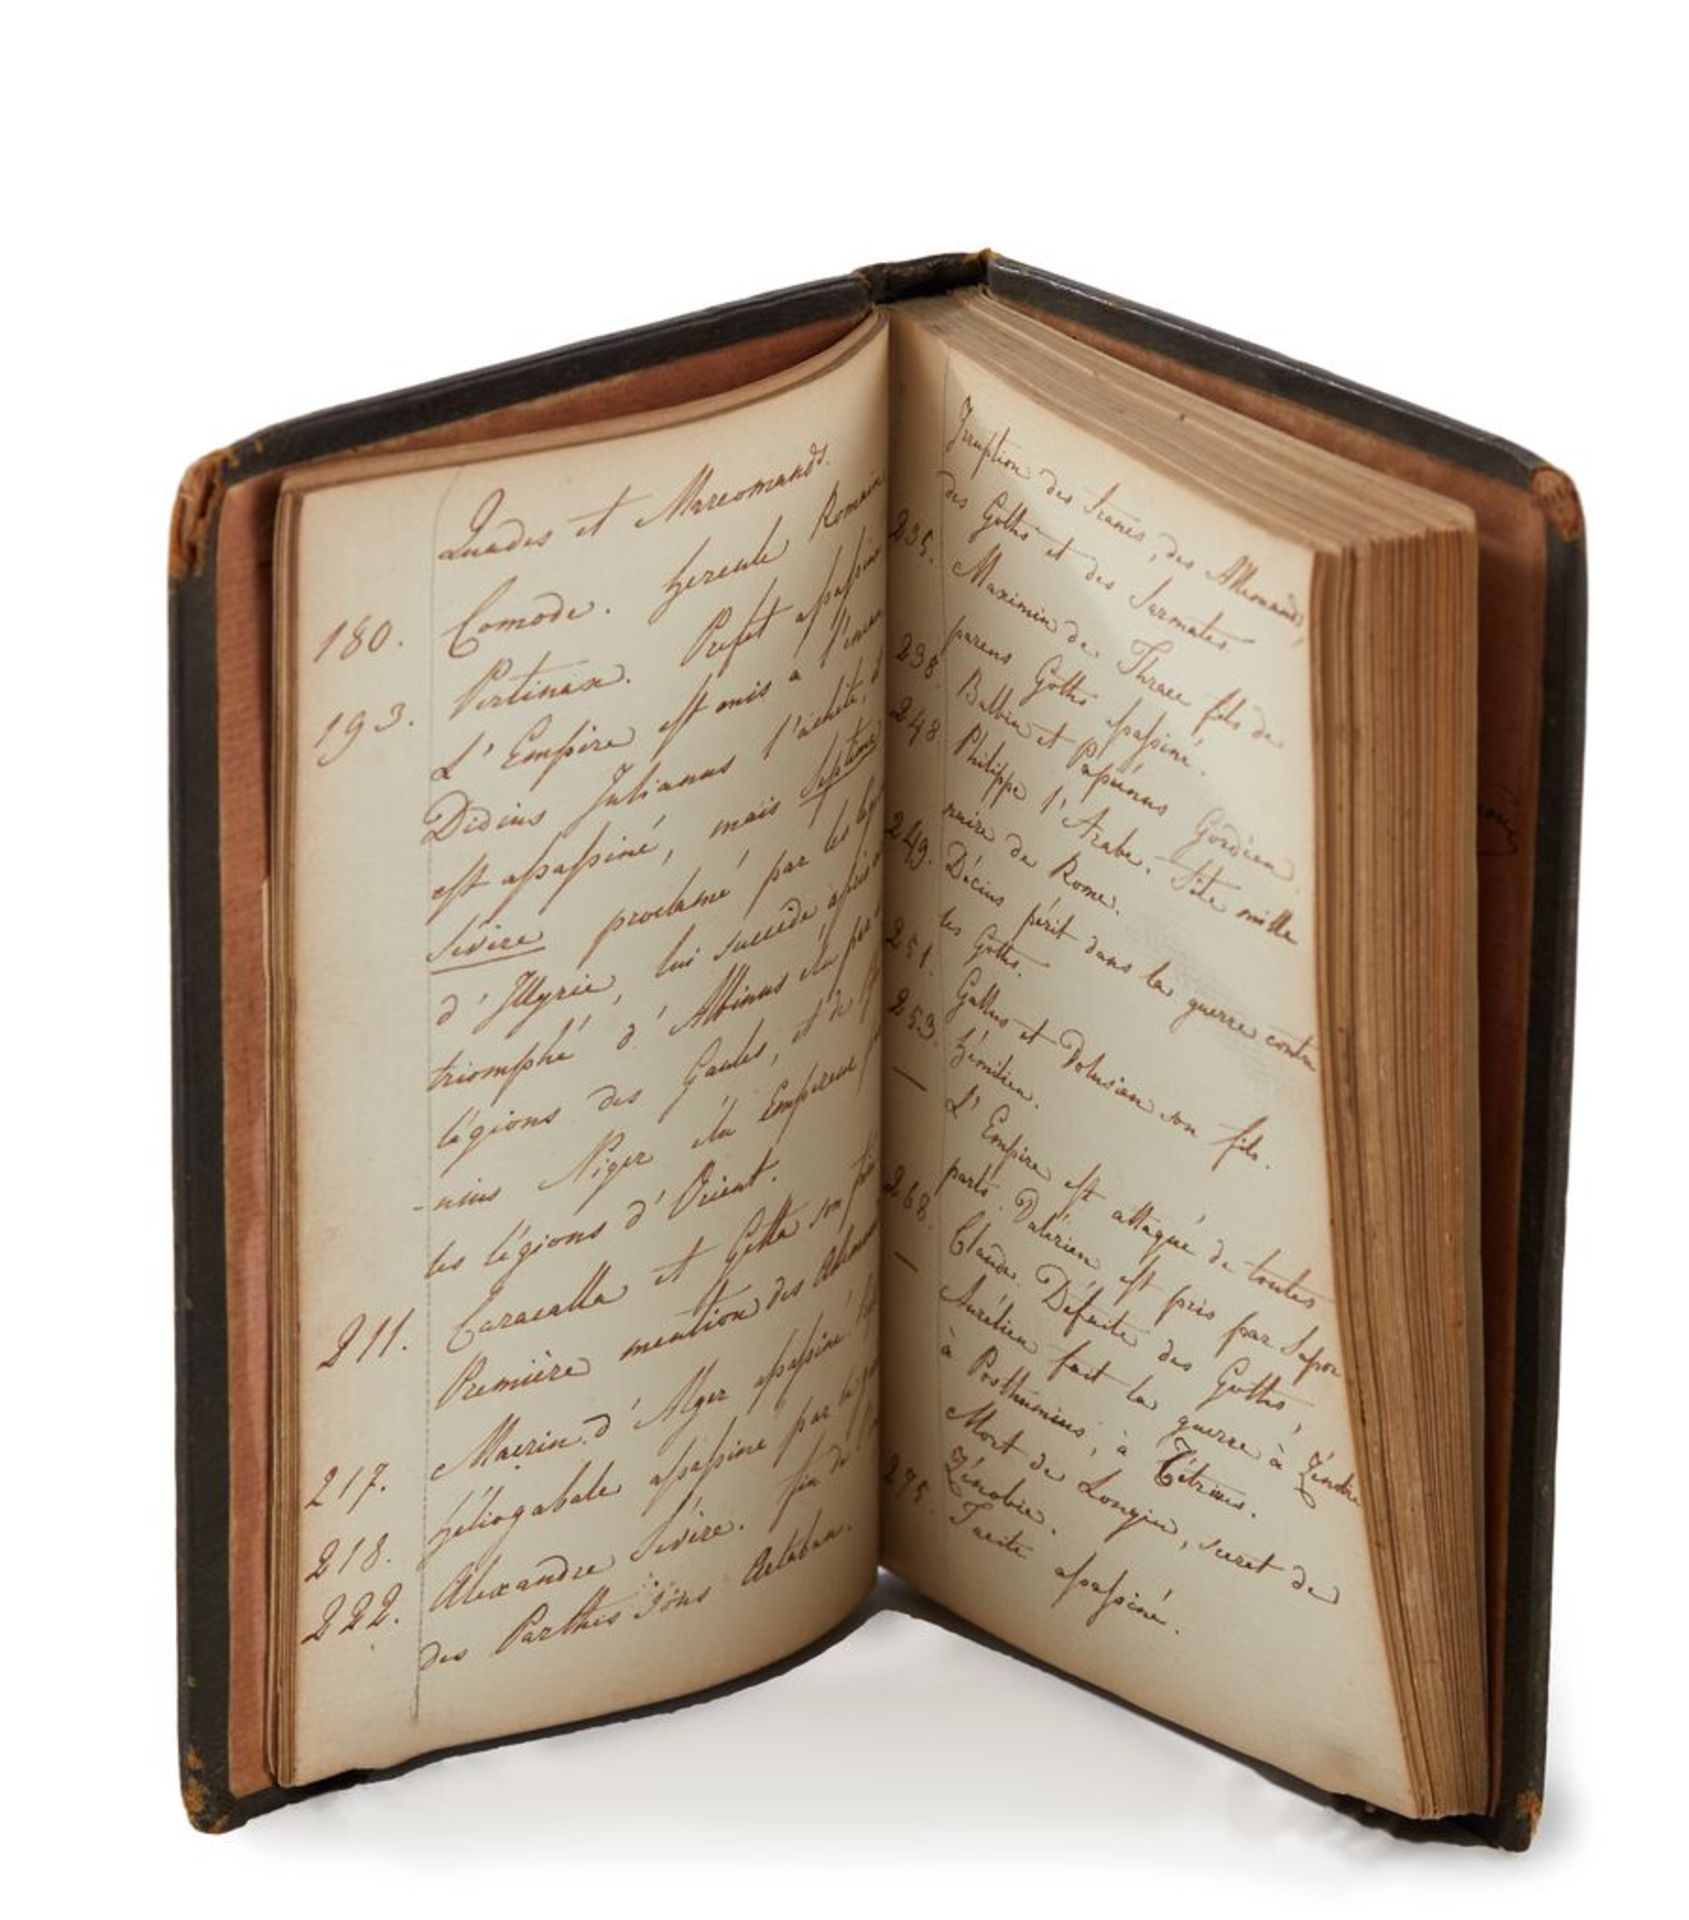 Quades et Marcomands.
180. Comode. Hercule Romain
193. Pertinax. Prefet assassiné
L'Empire est mis a l'encan
Didius Julianus l'achète, il
est assassiné, mais Septime
Sévère proclamé par les légions
d'Illyrie, lui succède après
triomphé d'Albinus élu par
légions des Gaules, et de
-nius Niger élu Empereur
les légions d'Orient.
211. Caracalla et Getta son frère
Première mention des Allemands
217. Macrin d'Alger assassiné.
218. Héliogabale assassiné par
222. Alexandre Sévère. fin de
des Parthes sous Artaban.
Irruption des Francs, des Allemands,
des Goths et des Sarmates.
235. Maximin de Thrace fils de
parens Goths assassiné.
238. Balbin et Papiénus Gordien.
248. Philippe l'Arabe. Fête mille
naire de Rome.
249. Décius périt dans la guerre contre
les Goths.
251. Gallus et Volusien son fils.
253. Hémilien.
— L'Empire est attaqué de toutes
parts. Valérien est pris par Sapor
268. Claude. Défaite des Goths,
— Aurélien fait la guerre à
à Posthumius, à Tétricus.
Mort de Longin, secret de
Zénobie.
275. Tacite assassiné.